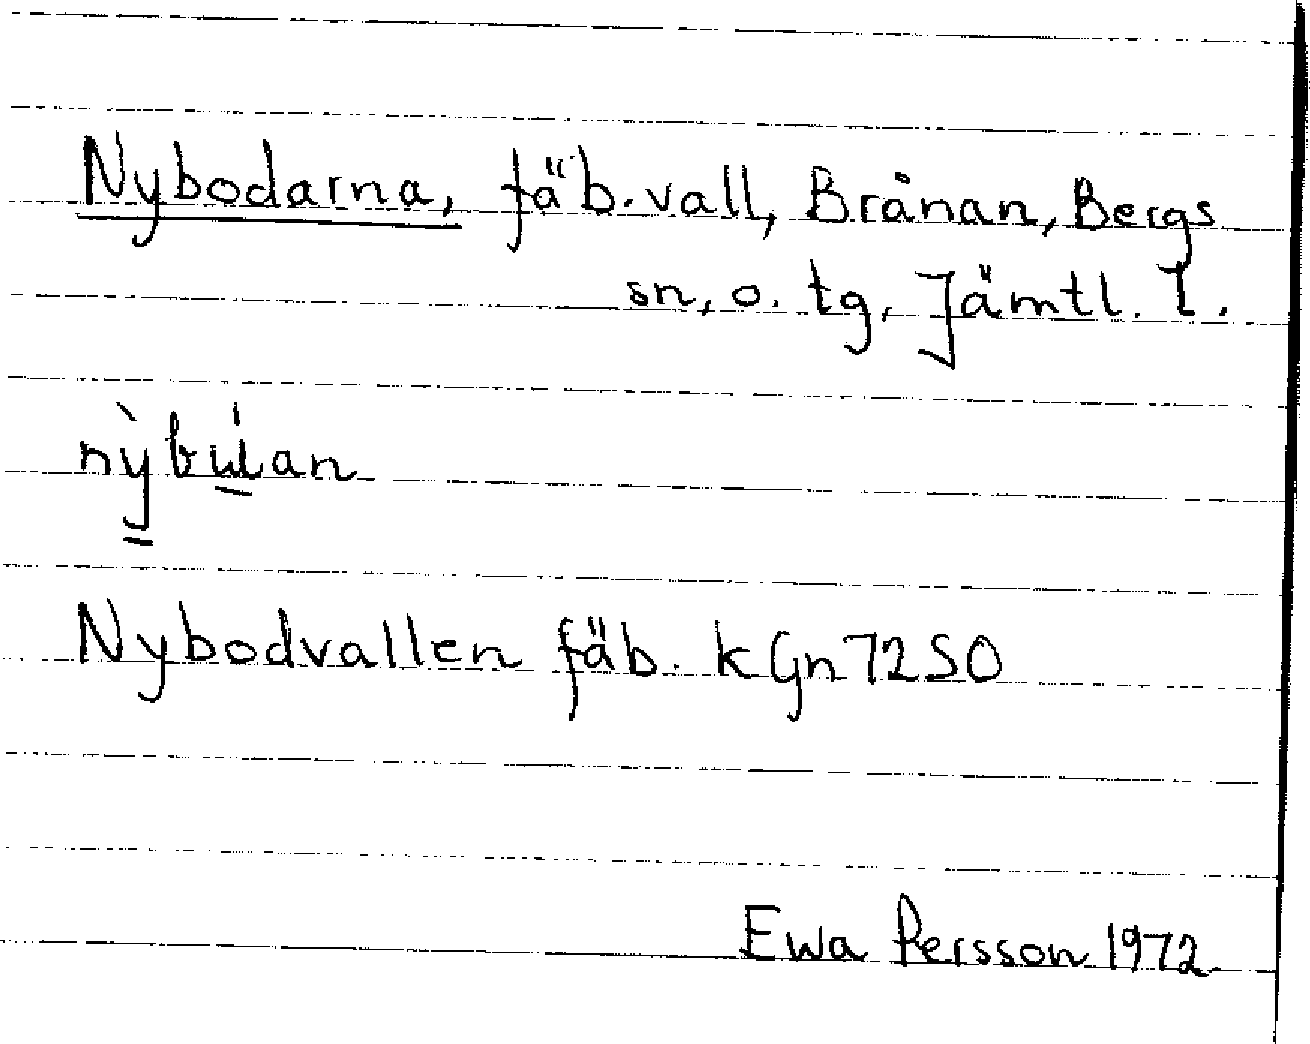 Nybodarna, fäb.vall, Brånan, Bergs
sn, o. tg, Jämtl. l.
nỳbúan
Nybodvallen fäb. kGn72SO
Ewa Persson 1972